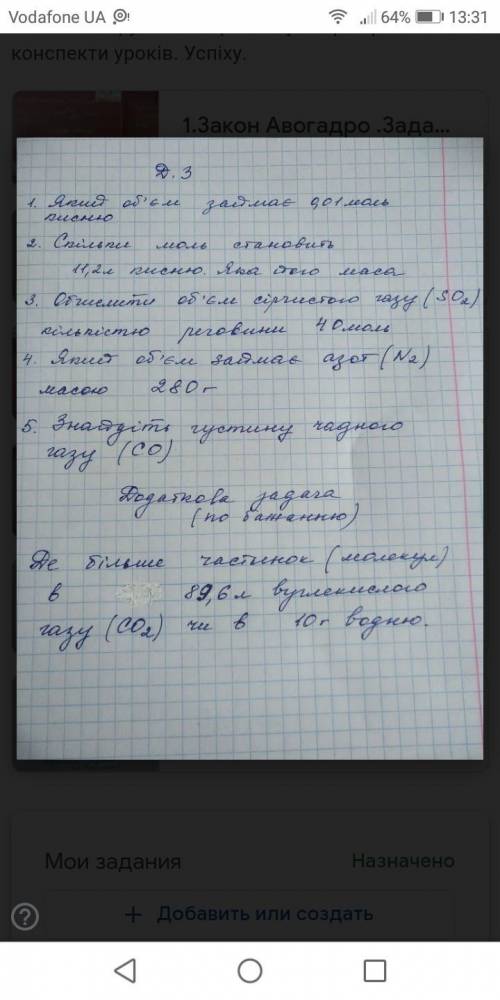 Vodafone UA 64% 13:31
конспекти уроків. Успіху.
1.Закон Авогадро .Зада...
Д. З
1. Який об'єм займає 0,01 моль
кисню
2. Скільки моль становить
11,2л кисню. Яка його маса
3. Обчислити об'єм сірчистого газу (SO₂)
кількістю речовини 40моль
4. Який об'єм займає азот (N₂)
масою 280г
5. Знайдіть густину чадного
газу (CO)
Додаткова задача
(по бажанню)
Де більше частинок (молекул)
в 89,6л вуглекислого
газу (CO₂) чи в 10г водню.
Мои задания Назначено
+ Добавить или создать